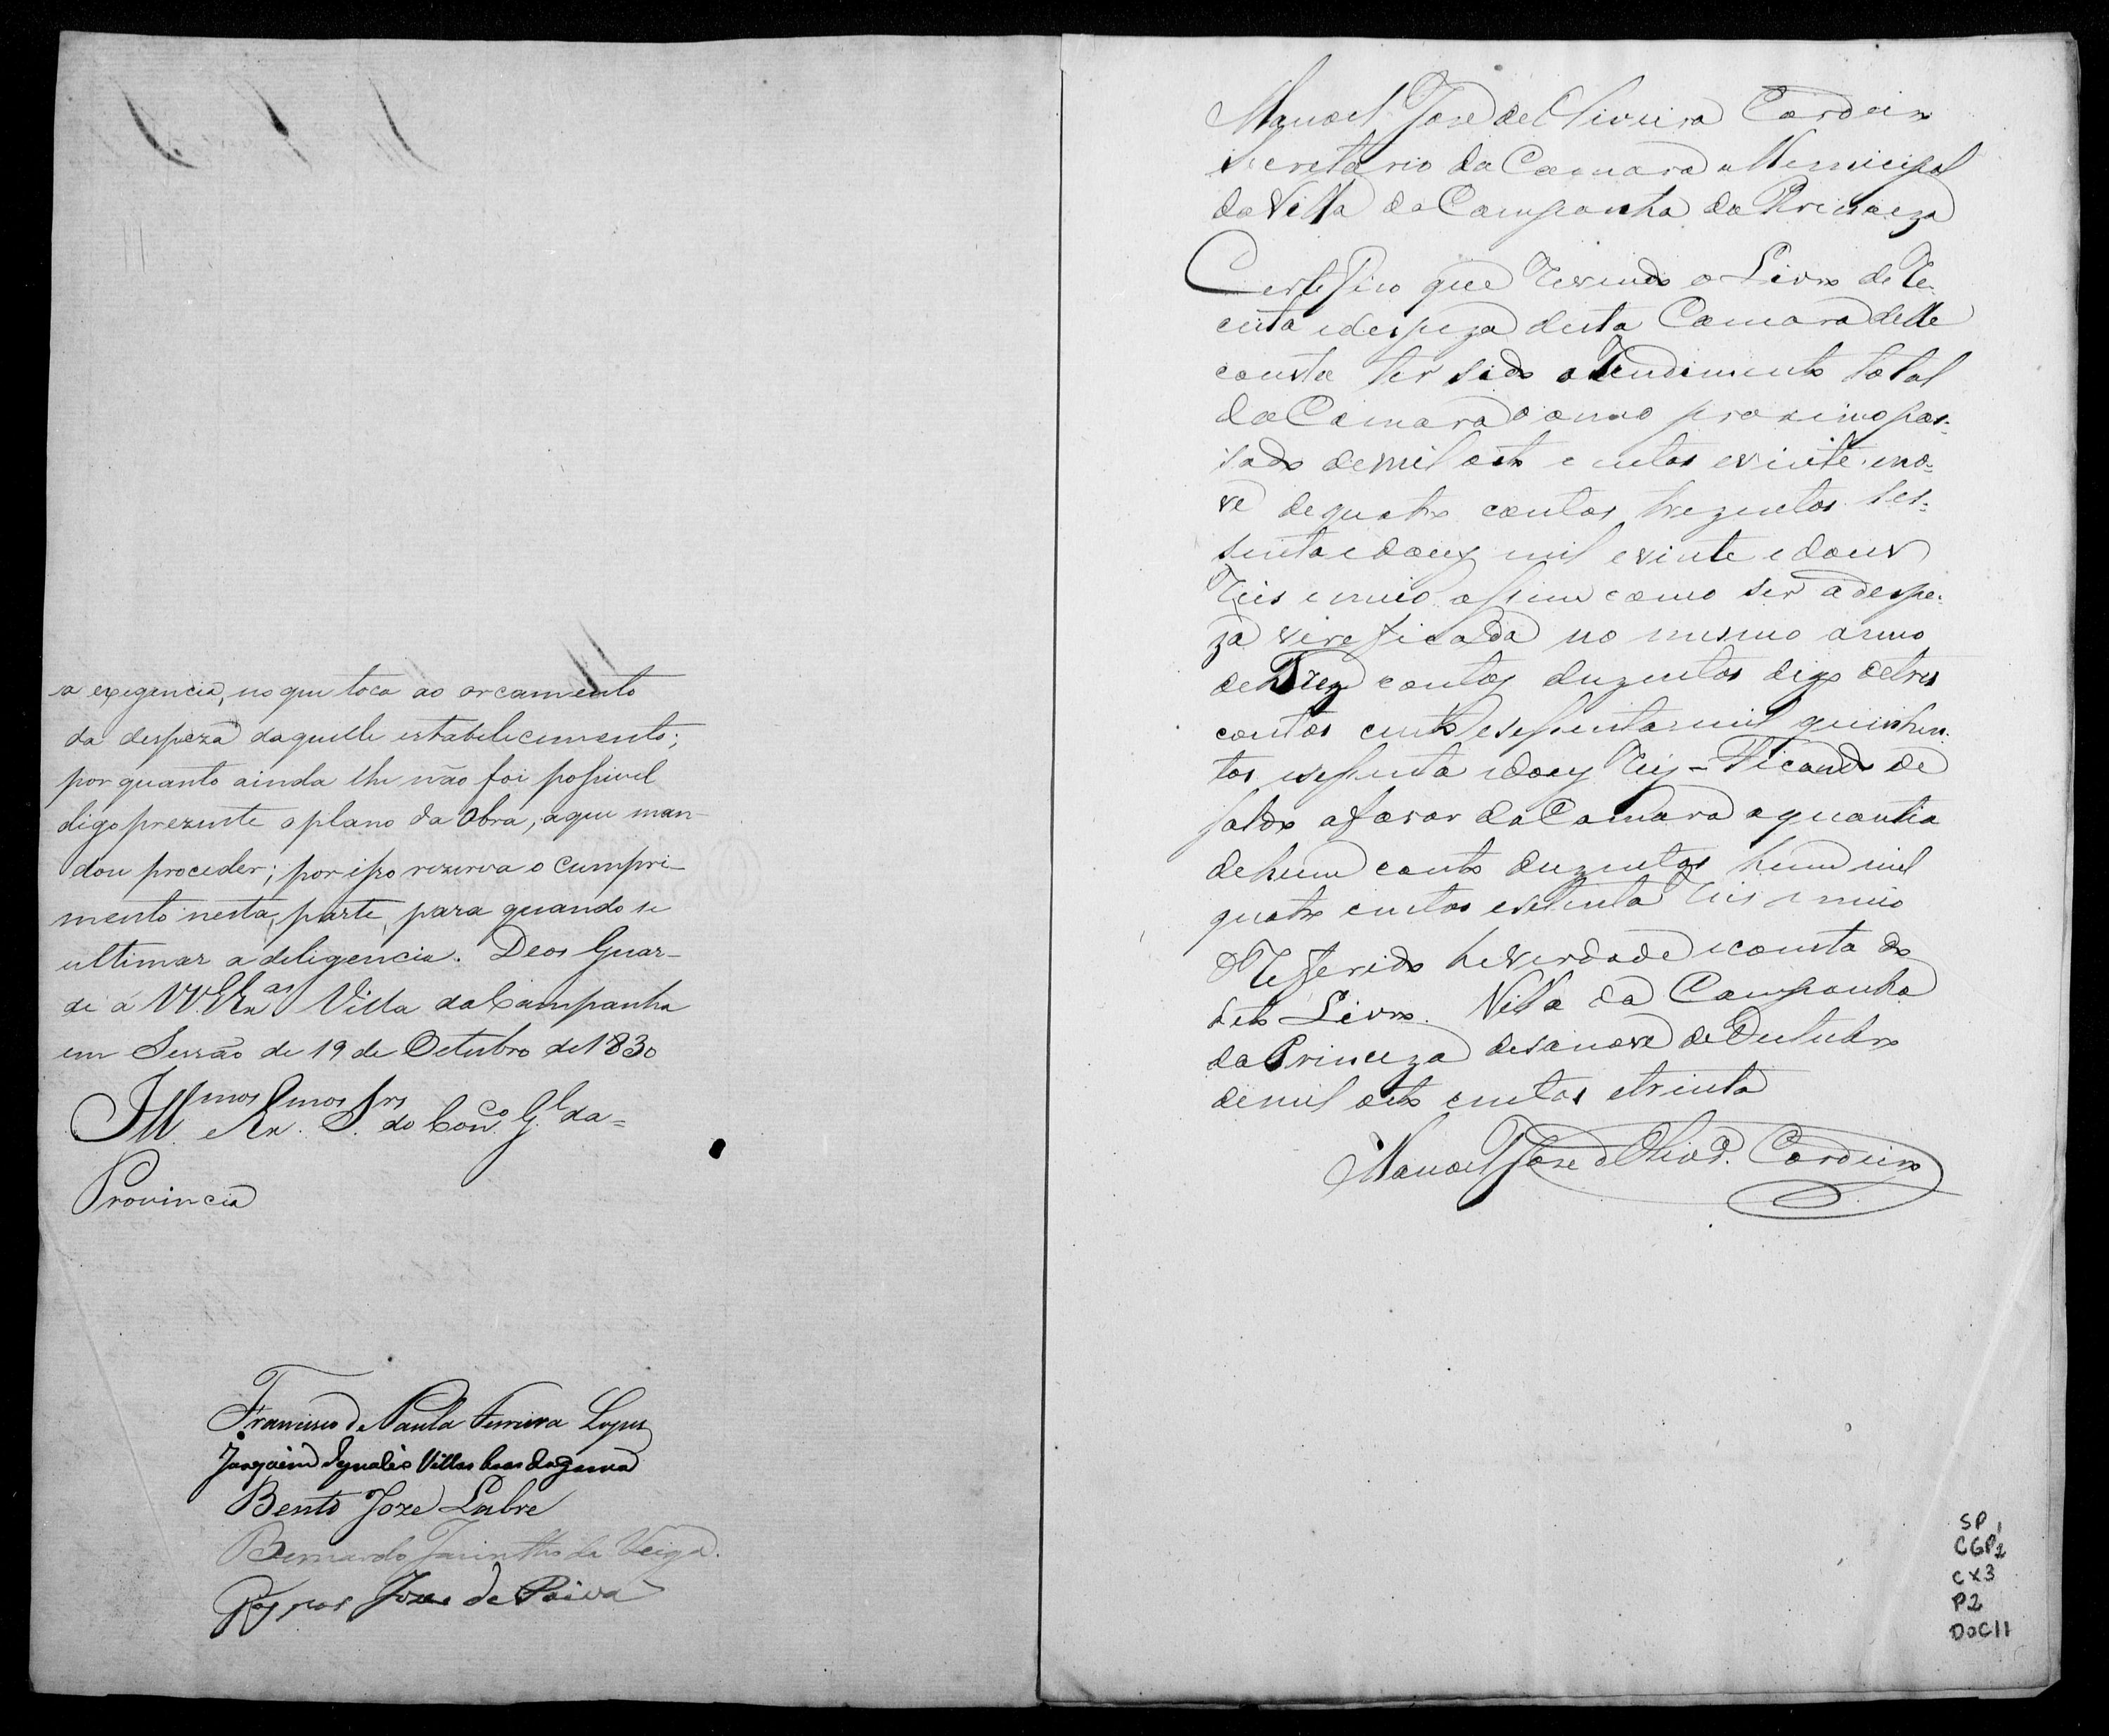 sa exegencia, no que toca ao orcamento
da despeza daquelle estabelecimento;
por quanto ainda lhe não foi possivel
digo prezente o plano da Obra, a que man-
dou proceder; por isso rezerva o cumpri-
mento nesta parte, para quando se
ultimar a deligencia. Deos Guar-
de a VV. Exas Villa da Campanha
em Sessão de 19 de Octubro de 1830
Illmos e Exmos Srs do Conco Gl da=
Provincia
Francisco de Paula Ferreira Lopes
Joaquim Ignacio Villas boas da gama
Bento Joze Labre
Bernardo Jacintho da Veiga.
Joze de Paiva
Manoel Joze de Oliveira Cordeiro
Secretario da Camara Municipal
da Villa da Campanha da Princeza
Certefico que revendo o Livro de re-
ceita e despeza desta Camara delle
consta ter sido o rendimento total
da Camara o anno proximo pas-
sado de mil oito centos e vinte e no-
ve de quatro contos trezentos ses-
senta e douz mil e vinte e dous
reis e meio assim como ser a despe-
za vereficada no mesmo anno
de trez contos duzentos digo de tres
contos cento e sessenta mil quinhen-
tos e sessenta e doux reis - Ficando de
saldo a favor da Camara a quantia
de hum conto duzentos hum mil
quatro centos e setenta reis e meio
O referido he verdade e consta do
dito Livro. Villa da Campanha
da Princeza desanove de Outubro
de mil oito centos e trinta
Manoel Joze de Olivra. Cordeiro
SP 1
CGP2
CX3
P2
DOC11